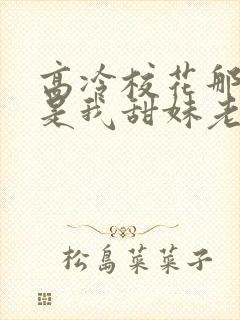 高冷校花那
是我甜妹老
松島菜菜子